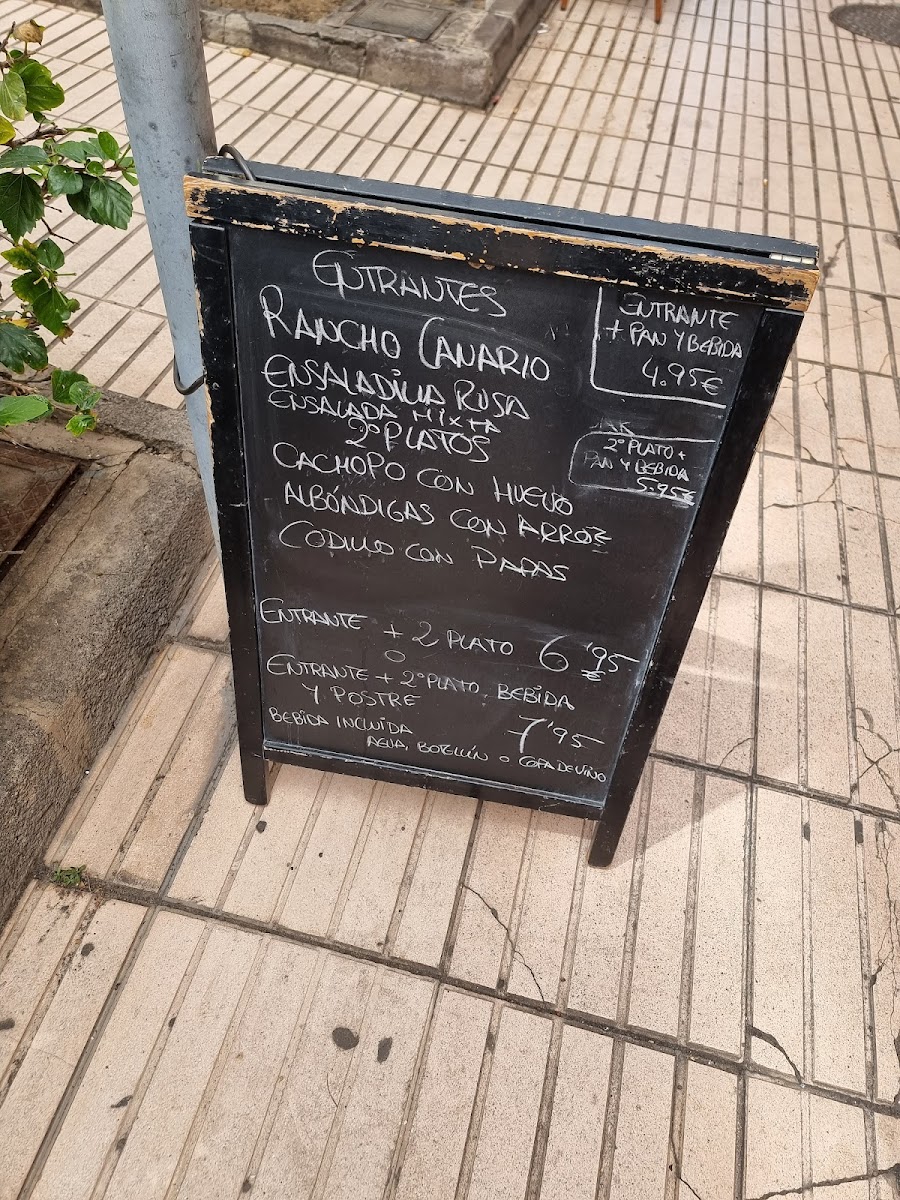 ENTRANTES
RANCHO CANARIO
ENSALADILLA RUSA
ENSALADA MIXTA
2º PLATOS
CACHOPO CON HUEVO
ALBÓNDIGAS CON ARROZ
CODILLO CON PAPAS
ENTRANTE
+ PAN Y BEBIDA
4.95€
2º PLATO +
PAN Y BEBIDA
5.95€
ENTRANTE + 2 PLATO 6'95
€
O
ENTRANTE + 2º PLATO, BEBIDA
Y POSTRE
7'95
BEBIDA INCLUIDA
AGUA, BOTELLÍN O COPA DE VINO